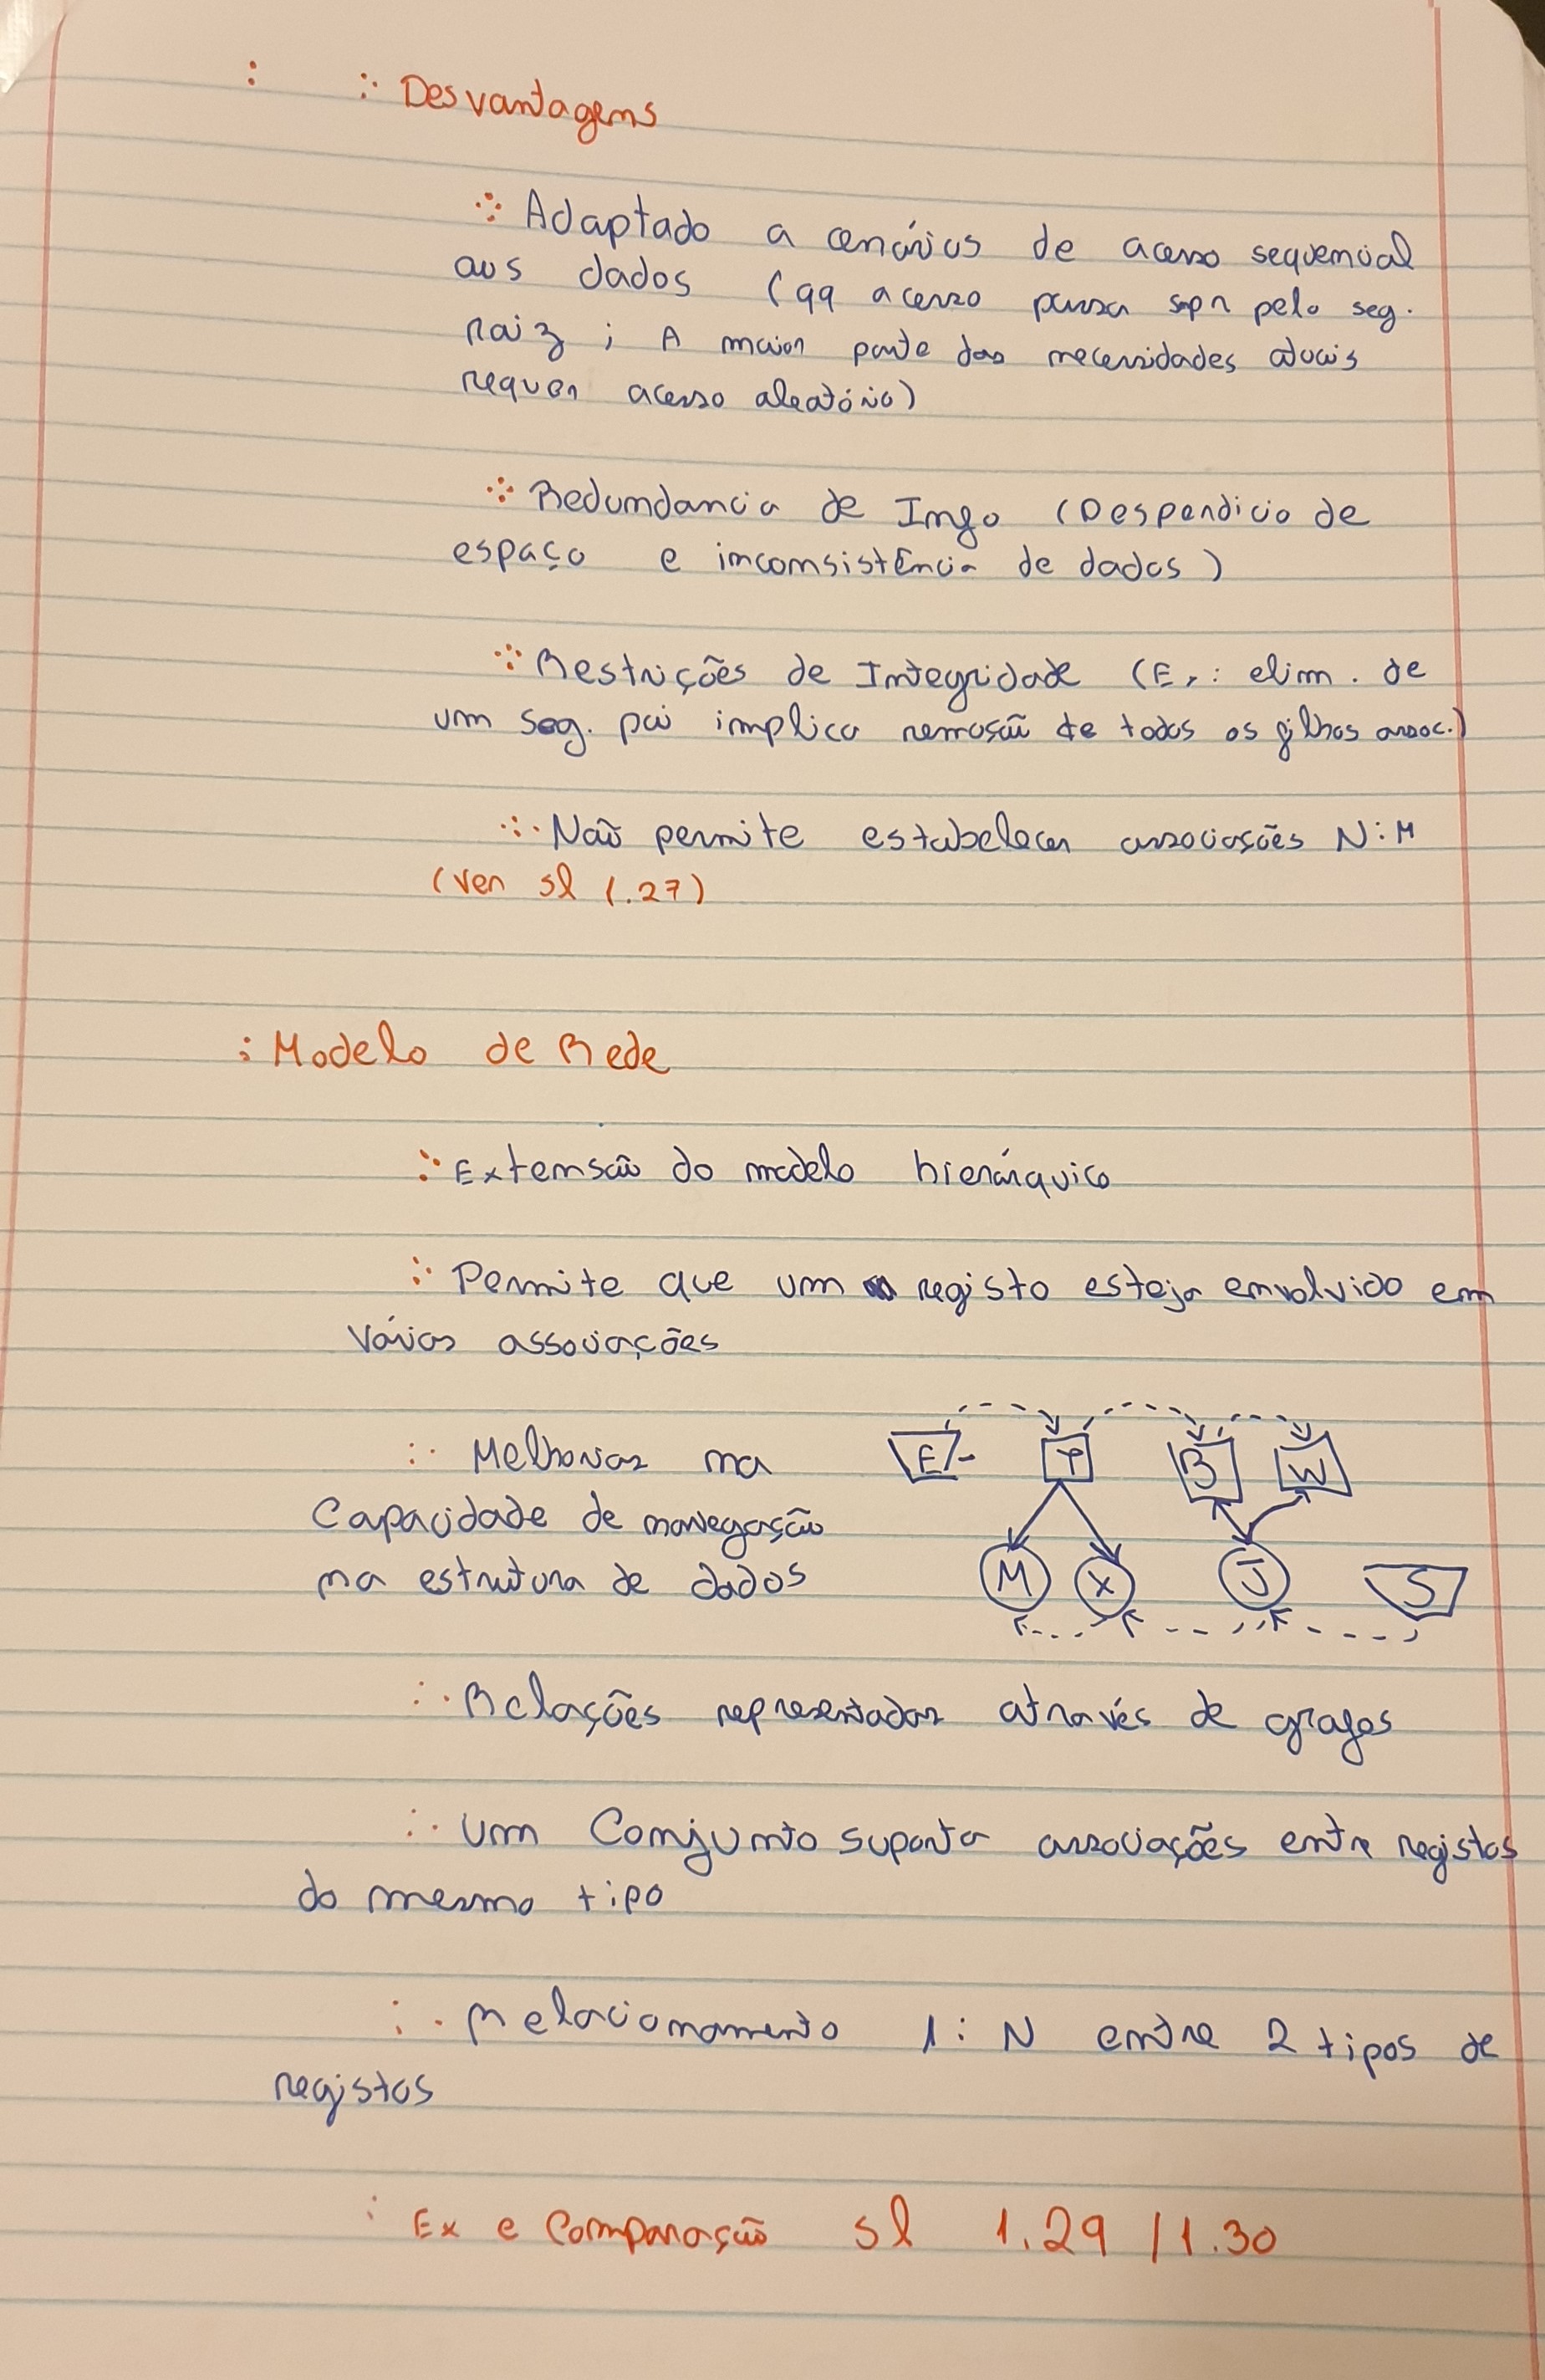 : ∴ Desvantagens
Adaptado a cenários de acesso sequencial
aos dados (qq acesso passa sepr pelo seg.
raiz ; A maior parte das necessidades atuais
requer acesso aleatório)
Redundancia de Info (Desperdicio de
espaço e inconsistência de dados)
Restrições de Integridade (Ex: elim. de
um seg. pai implica remosão de todos os filhos assoc.)
Não permite estabelecer associações N:M
(ver sl 1.27)
: Modelo de Rede
Extensão do modelo hierárquico
Permite que um registo esteja envolvido em
várias associações
Melhorias na
Capacidade de navegação
na estrutura de dados
E P B W
M X J S
Relações representadas através de grafos
Um Conjunto suporta associações entre registos
do mesmo tipo
Relacionamento 1:N entre 2 tipos de
registos
Ex e Comparação sl 1.29 / 1.30